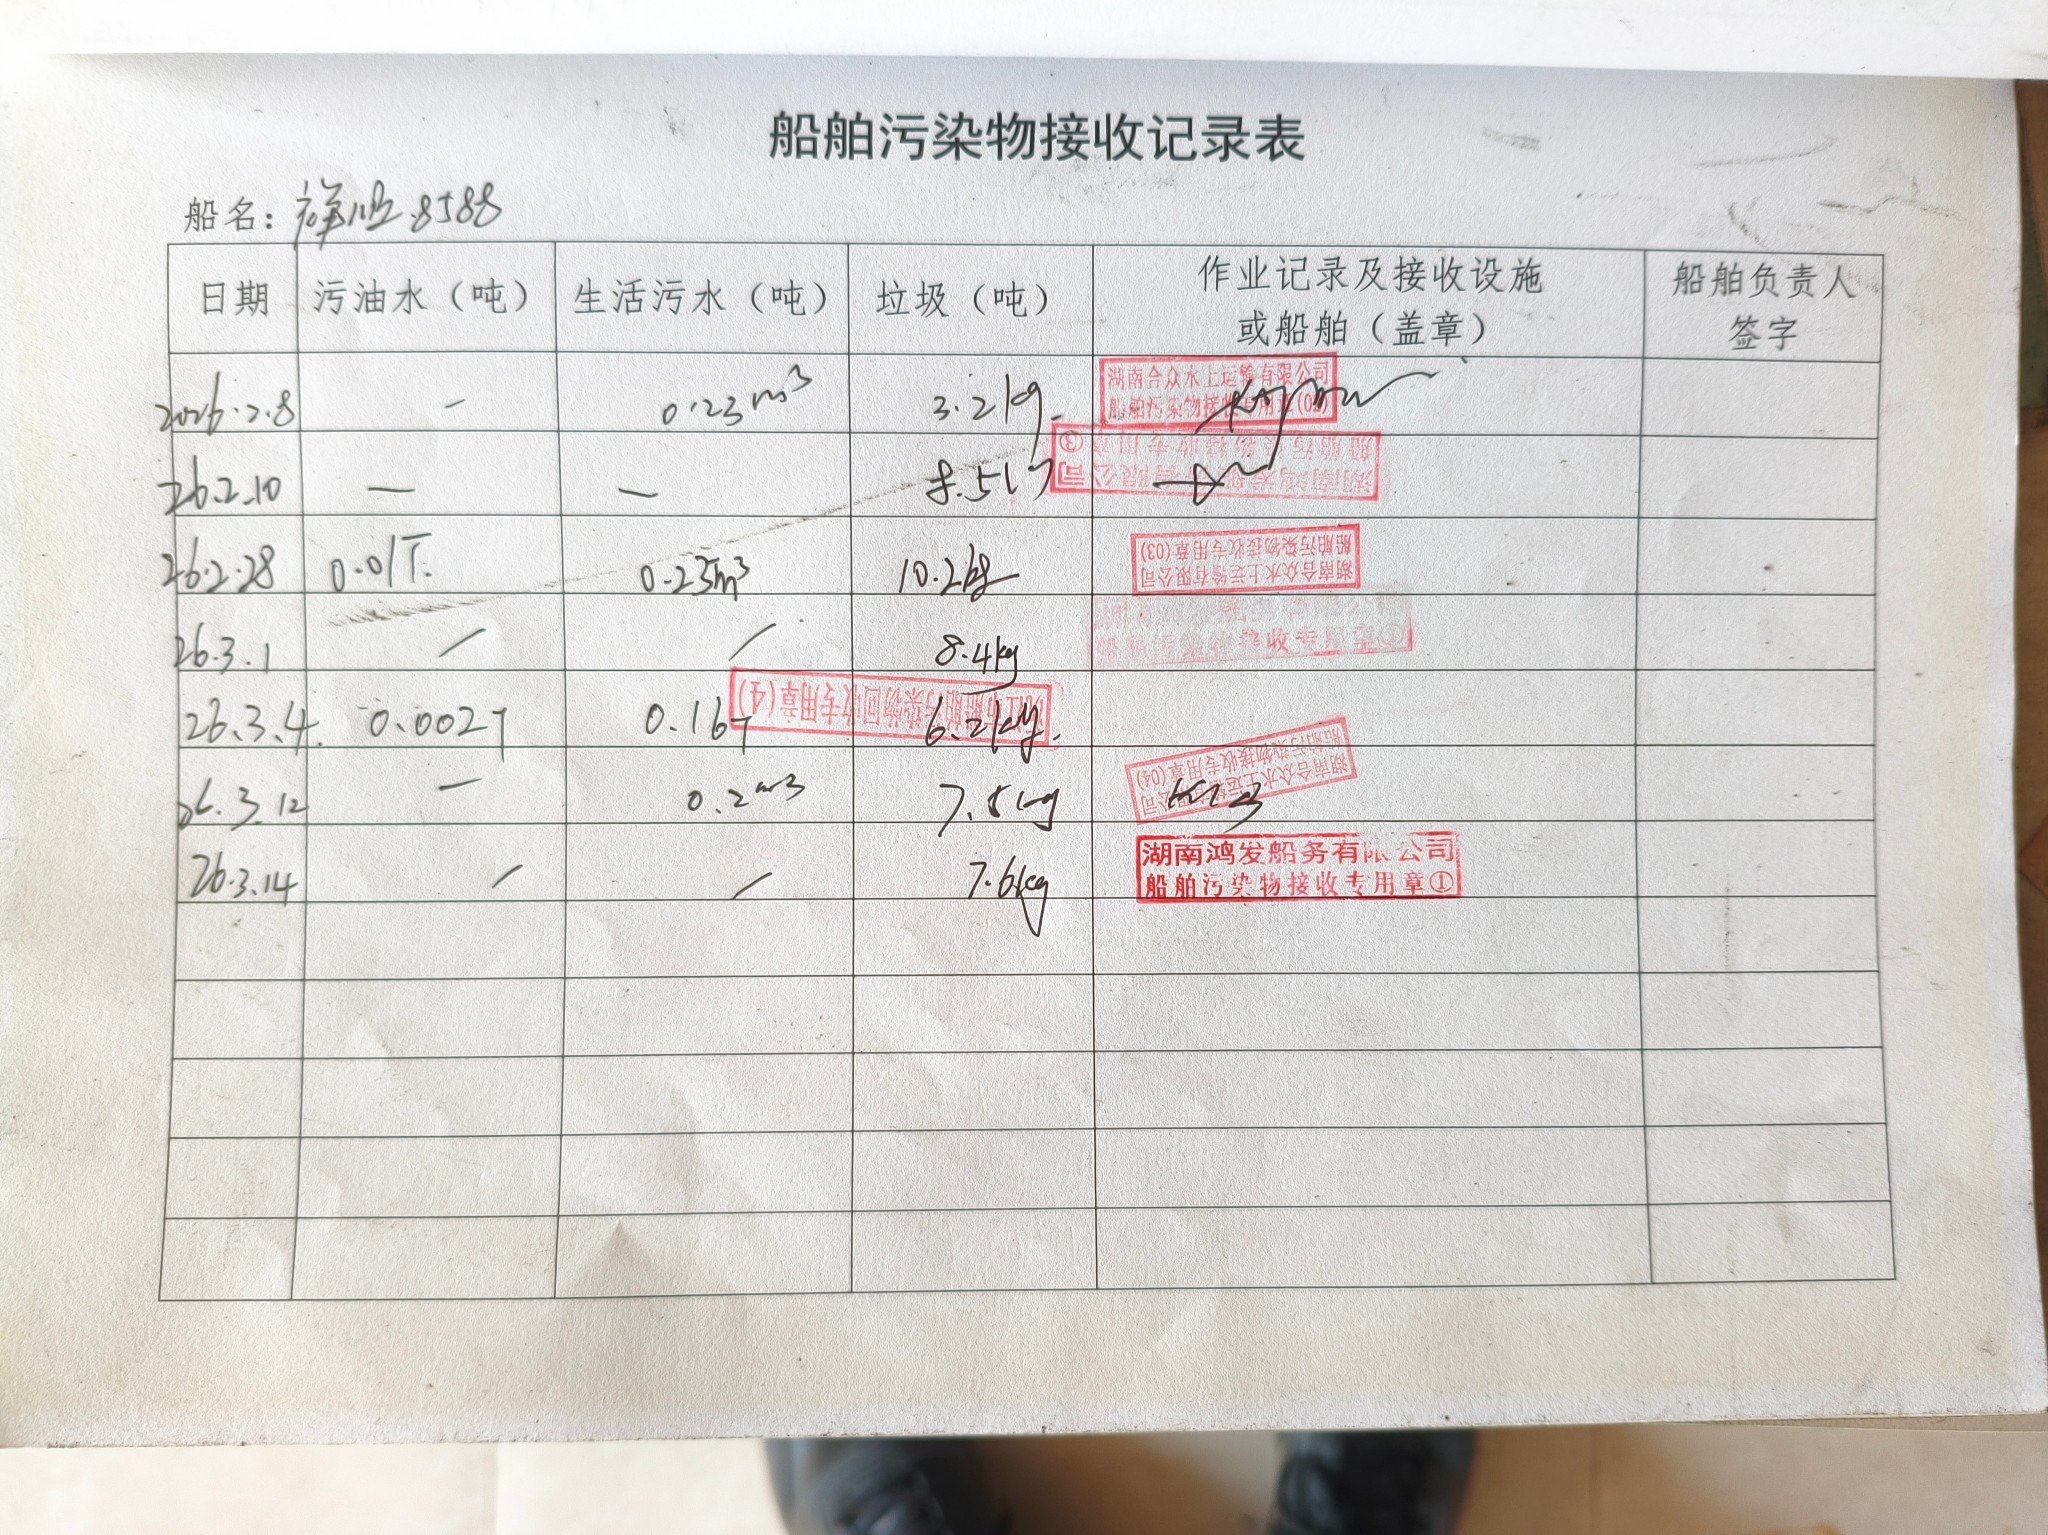 船舶污染物接收记录表
船名：祥顺8588
日期 污油水（吨） 生活污水（吨） 垃圾（吨） 作业记录及接收设施或船舶（盖章） 船舶负责人签字
2026.2.8 — 0.23m³ 3.2kg. 湖南合众水上运输有限公司
船舶污染物接收专用章
26.2.10 — — 8.5kg 船舶污染物接收专用章③
26.2.28 0.01T. 0.23m³ 10.2kg 湖南合众水上运输有限公司
船舶污染物接收专用章(03)
26.3.1 / / 8.4kg 接收专用章①
26.3.4. 0.002T 0.16T 6.2kg. 船舶污染物回收专用章(4)
26.3.12 — 0.2m³ 7.5kg 湖南合众水上运输有限公司
船舶污染物接收专用章(04)
26.3.14 / / 7.6kg 湖南鸿发船务有限公司
船舶污染物接收专用章①